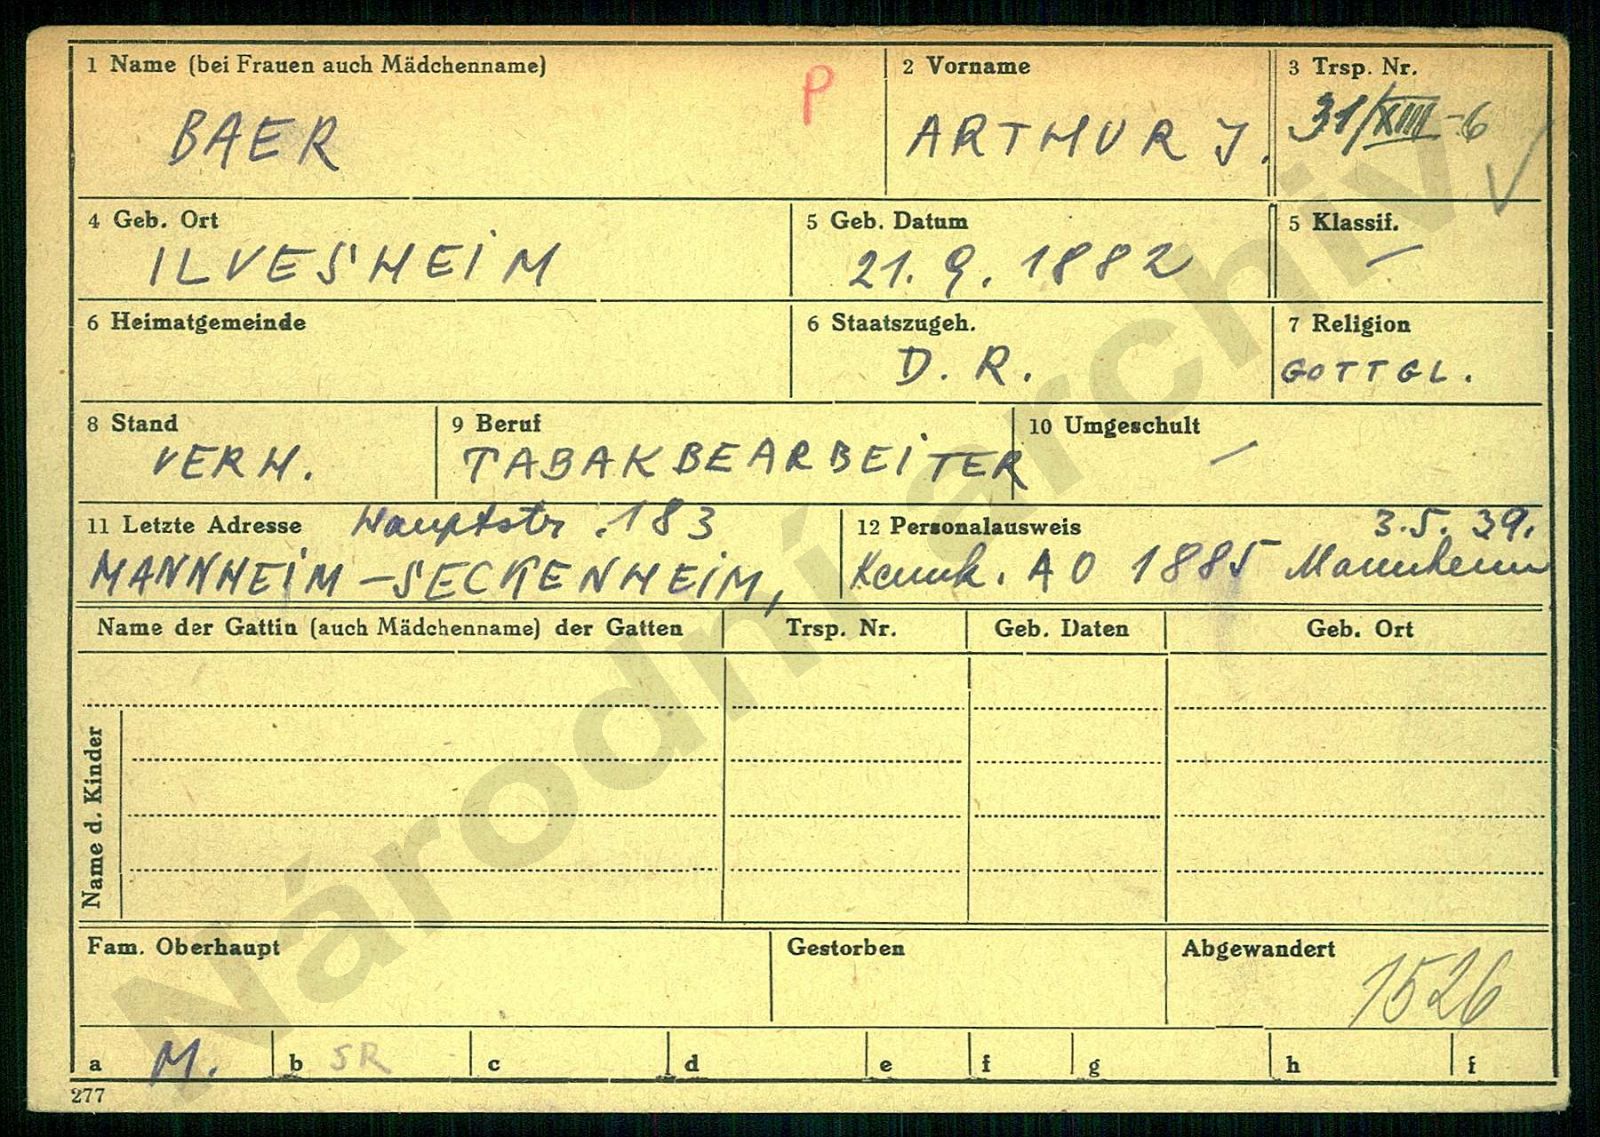 1 Name (bei Frauen auch Mädchenname)
P
BAER
2 Vorname
ARTHUR J.
3 Trsp. Nr.
31/XIII-6
4 Geb. Ort
ILVESHEIM
5 Geb. Datum
21. 9. 1882
5 Klassif.
—
6 Heimatgemeinde
6 Staatszugeh.
D. R.
7 Religion
GOTTGL.
8 Stand
VERH.
9 Beruf
TABAKBEARBEITER
10 Umgeschult
—
11 Letzte Adresse Hauptstr. 183
MANNHEIM-SECKENHEIM,
12 Personalausweis 3.5.39.
Kennk. A 0 1885 Mannheim
Name der Gattin (auch Mädchenname) der Gatten
Trsp. Nr.
Geb. Daten
Geb. Ort
Name d. Kinder
Fam. Oberhaupt
Gestorben
Abgewandert
1526
a M.
b SR
c
d
e
f
g
h
i
277
Národní archiv